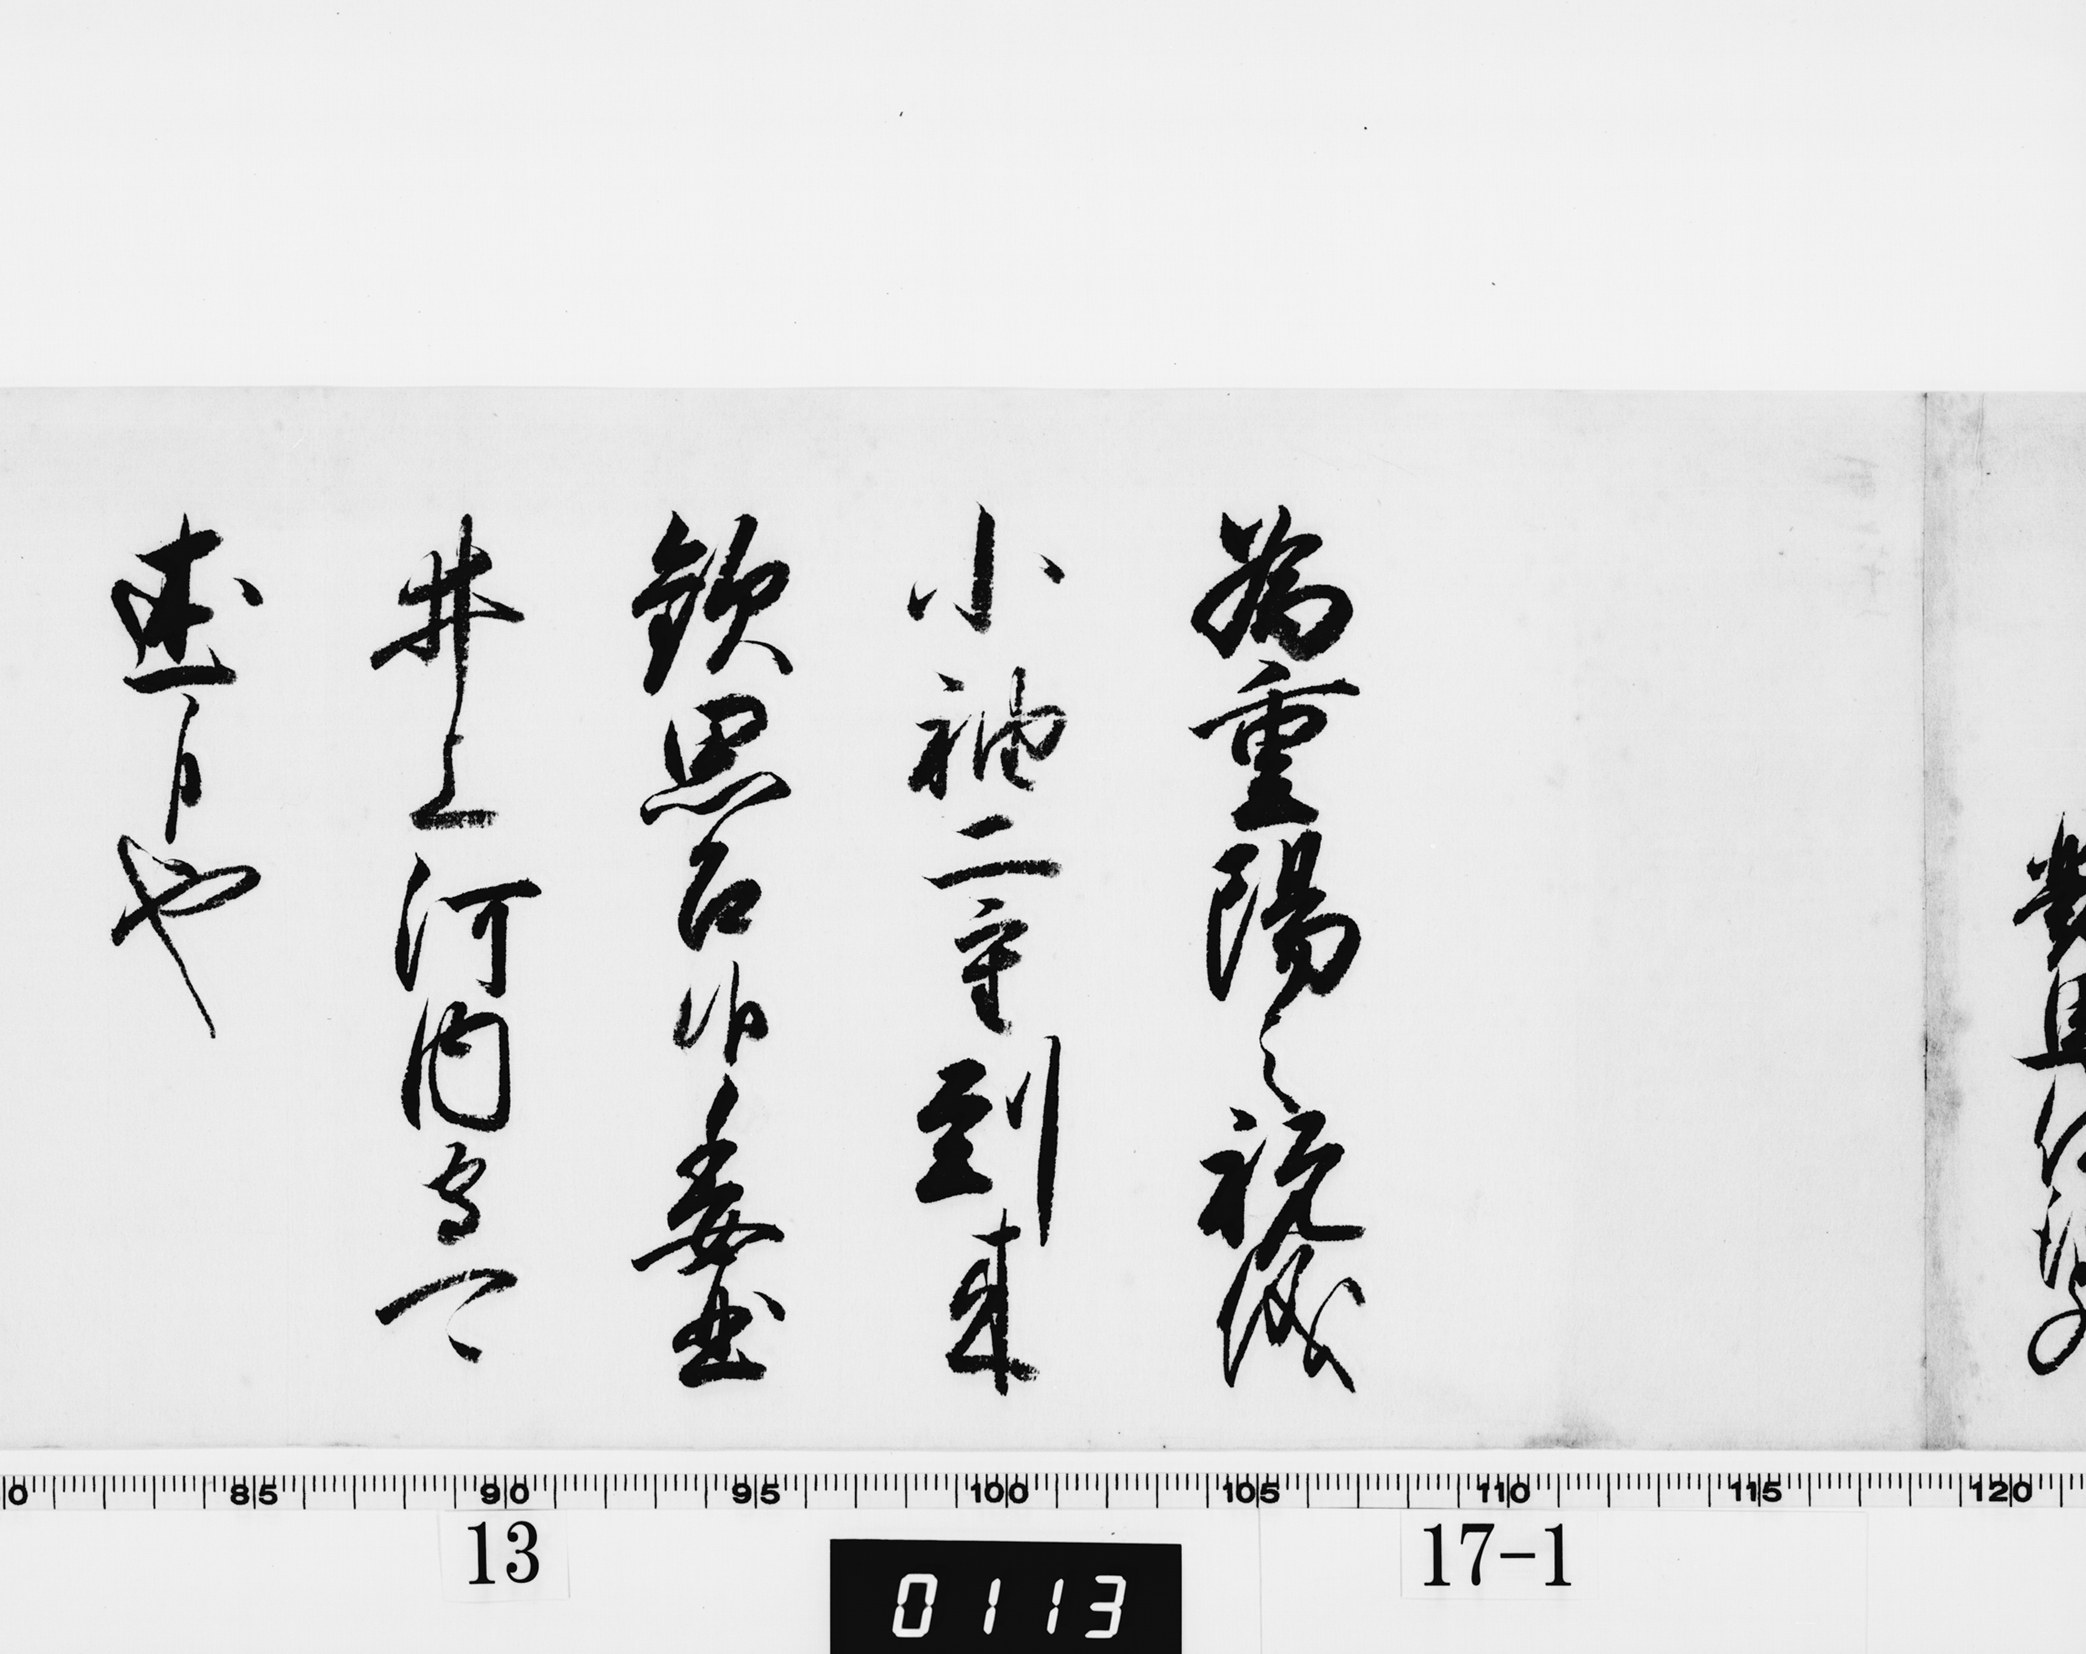 為重陽之祝儀
小袖二重到来
歓思召候委曲
井上河内守可
述候也
85
90
95
100
105
110
115
120
13
17-1
0113